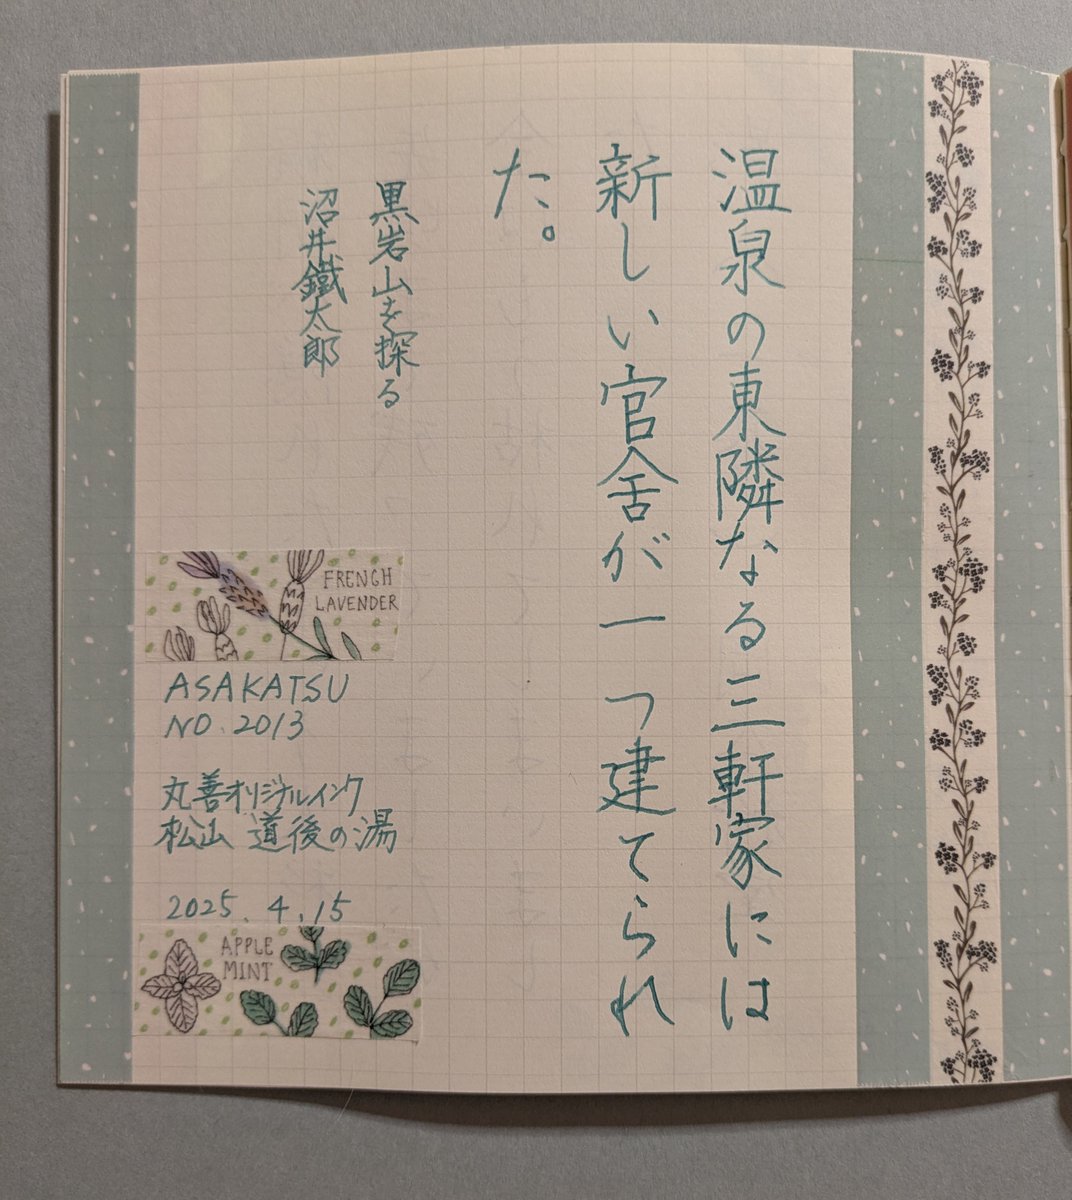 温泉の東隣なる三軒家には
新しい官舎が一つ建てられ
た。
黒岩山を探る
沼井鐵太郎
FRENCH
LAVENDER
ASAKATSU
NO.2013
丸善オリジナルインク
松山 道後の湯
2025.4.15
APPLE
MINT